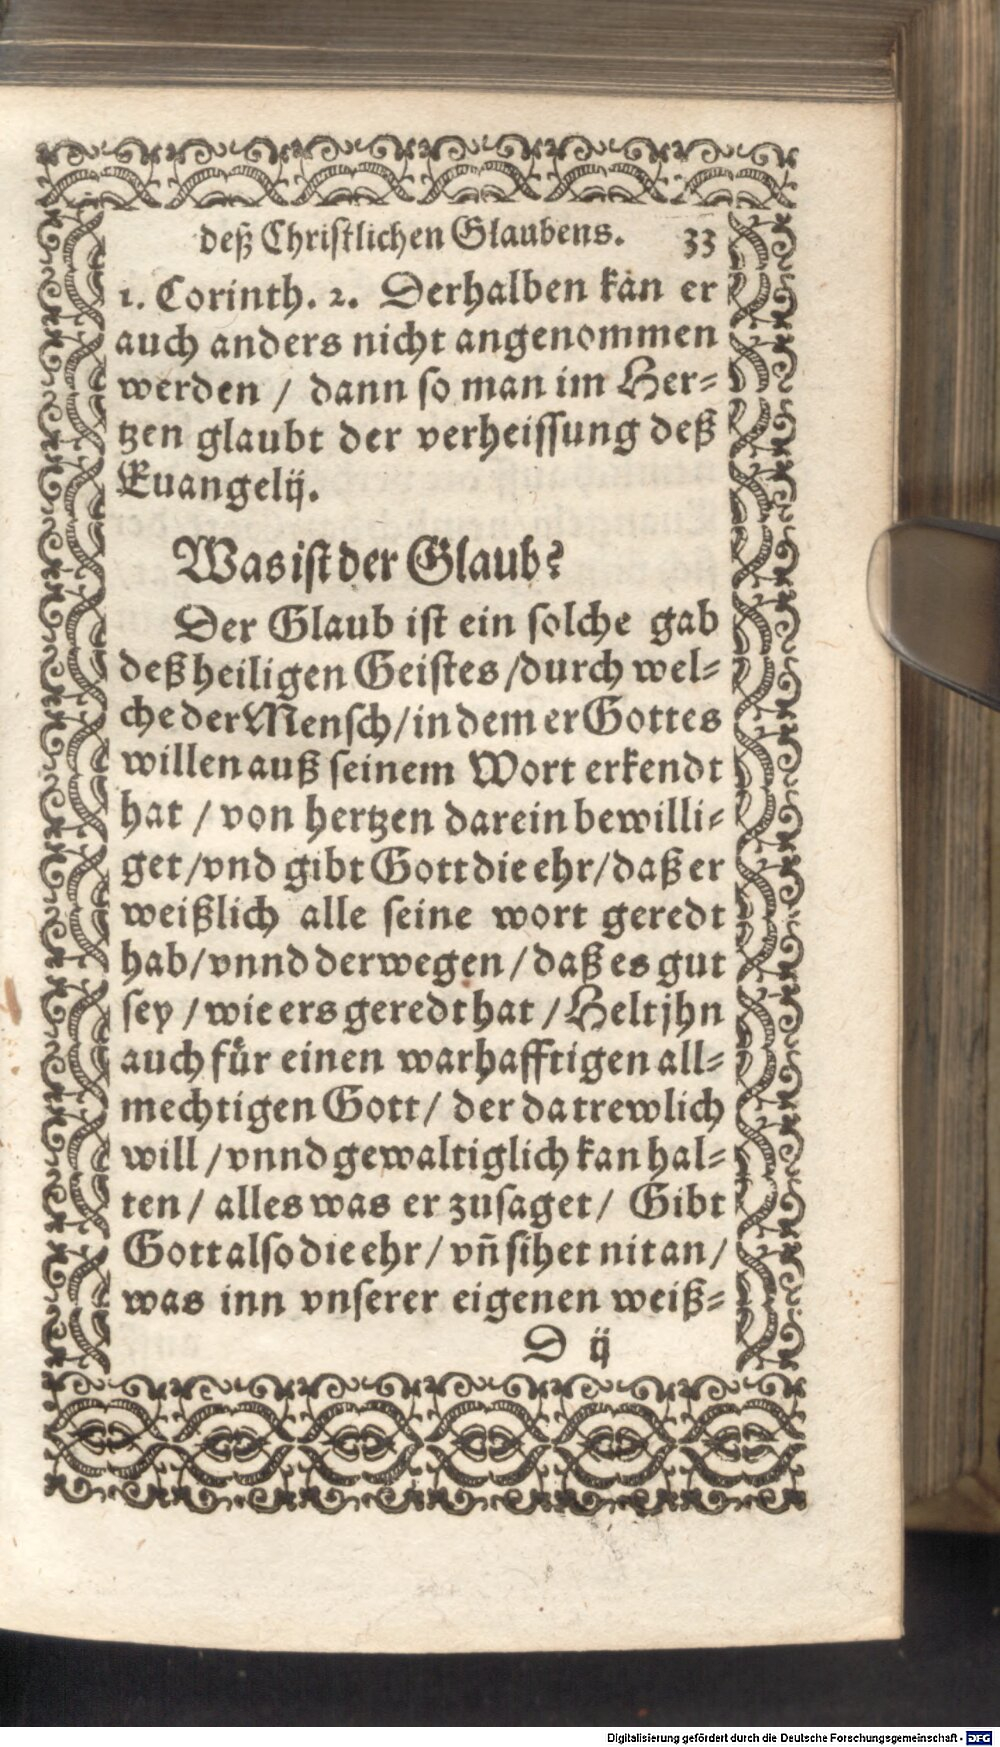 deß Chriſtlichen Glaubens. 33
1. Corinth. 2. Derhalben kan er
auch anders nicht angenommen
werden / dann ſo man im Her⸗
tzen glaubt der verheiſſung deß
Euangelij.
Was iſt der Glaub?
Der Glaub iſt ein ſolche gab
deß heiligen Geiſtes / durch wel⸗
che der Menſch / in dem er Gottes
willen auß ſeinem Wort erkendt
hat / von hertzen darein bewilli⸗
get / vnd gibt Gott die ehr / daß er
weißlich alle ſeine wort geredt
hab / vnnd derwegen / daß es gut
ſey / wie ers geredt hat / Helt jhn
auch fuͤr einen warhafftigen all⸗
mechtigen Gott / der da trewlich
will / vnnd gewaltiglich kan hal⸗
ten / alles was er zuſaget / Gibt
Gott alſo die ehr / vñ ſihet nit an /
was inn vnſerer eigenen weiß⸗
D ij
Digitalisierung gefördert durch die Deutsche Forschungsgemeinschaft - DFG